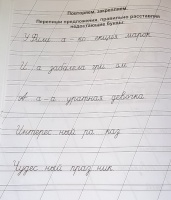 Повторяем, закрепляем.
Перепиши предложения, правильно расставляя
недостающие буквы.
У Фили к л кция марок
И а забила гри ля
А а а уратная девочка
Интерес ный ра каз
Чудес ный праз ник